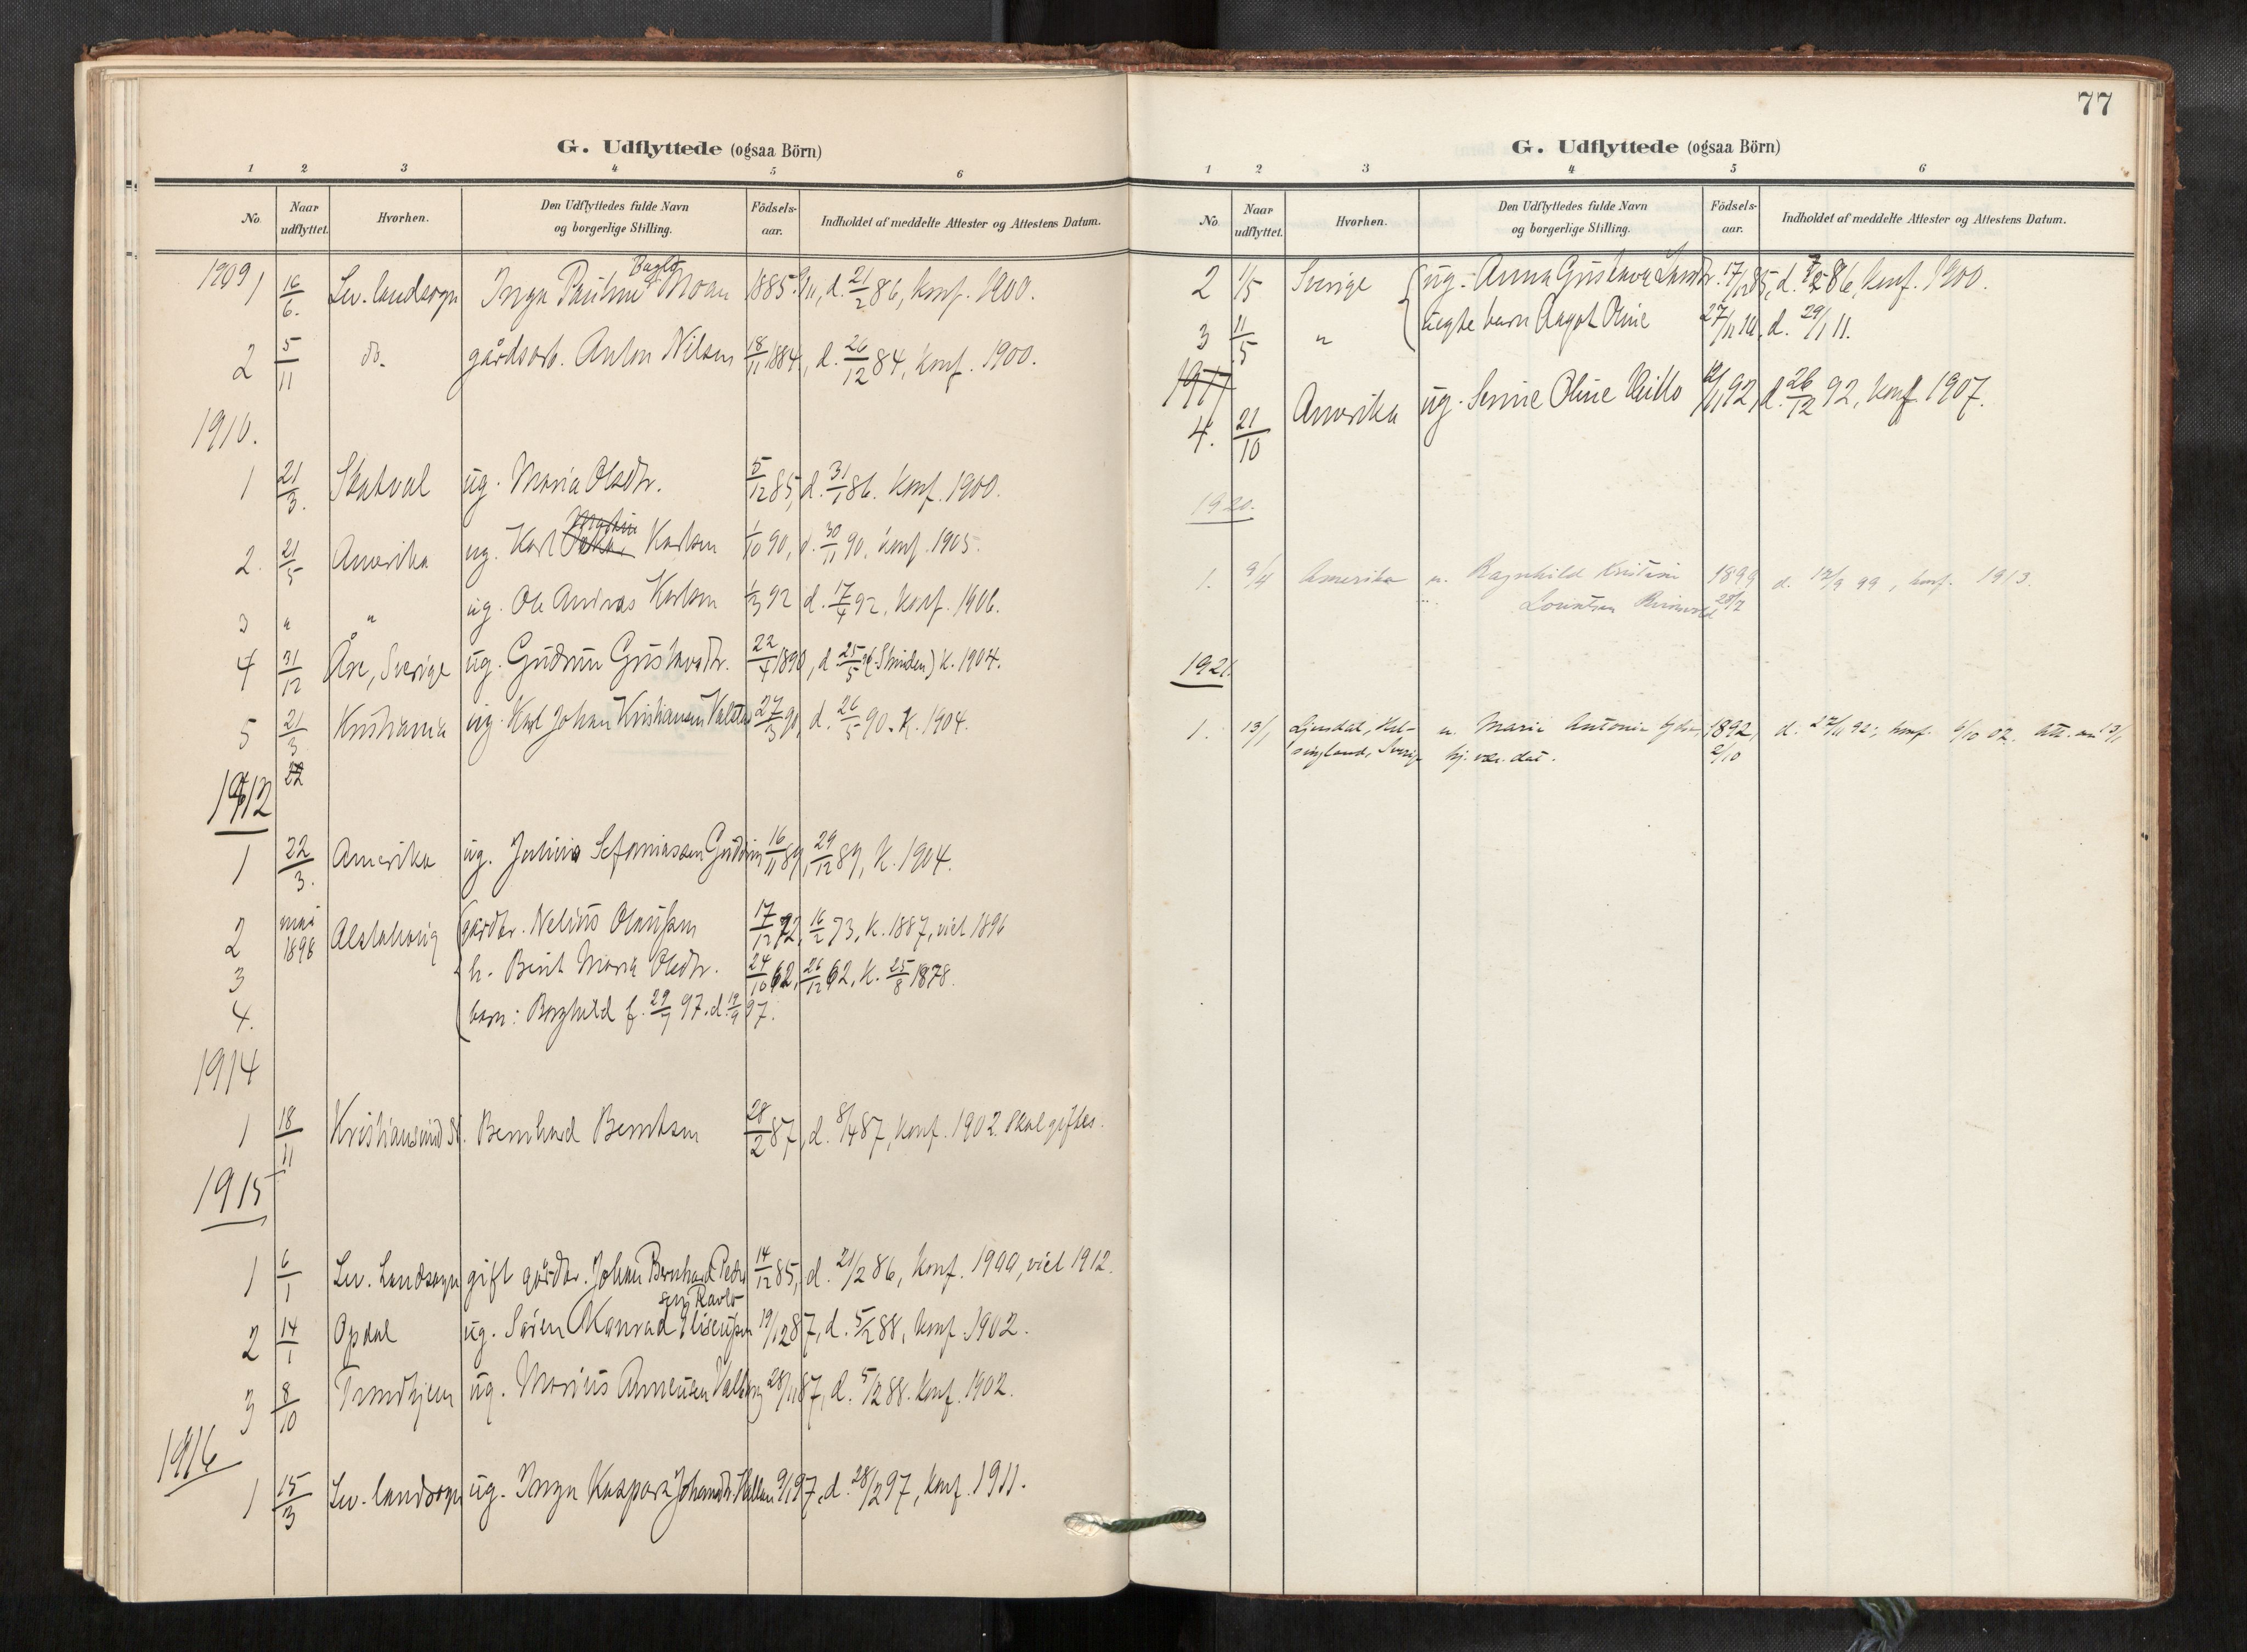 G. Udflyttede (ogsaa Börn)
1 2 3 4 5 6
No. Naar udflyttet. Hvorhen. Den Udflyttedes fulde Navn og borgerlige Stilling. Födsels-aar. Indholdet af meddelte Attester og Attestens Datum.
1909
1 16/6. Lev. landsogn Inga Pauline Moan 1885 d. 21/2 86, konf. 1900.
2 5/11 do. gårdsarb. Anton Nilsen 18/11 1884, d. 26/12 84, konf. 1900.
1910.
1 21/3. Skatval ug. Maria Olsdtr. 5/12 85, d. 31/1 86. konf. 1900.
2. 21/5 Amerika ug. Karl Karlsen 1/10 90, d. 30/11 90, konf. 1905.
3 " " ug. Ole Andreas Karlsen 1/3 92 d. 17/4 92, konf. 1906.
4 31/12 Åre, Sverige ug. Gudrun Gustavsdtr. 22/4 1890, d. 25/5 K. 1904.
5 21/3 Kristiania ug. Karl Johan Kristiansen 27/3 90, d. 26/5 90. K. 1904.
22
1912
1 22/3. Amerika ug. Julius Sefaniassen 16/11 89, 29/12 89, K. 1904.
2 mai 1898 Alstahaug gårdbr. Nelius Olausen 17/12 72, 16/2 73, K. 1887, viet 1896
3 h. Berit Maria Olsdtr. 24/10 62, 26/12 62, K. 25/8 1878.
4. barn: Borghild f. 29/7 97. d. 19/9 97.
1914
1 18/11 Kristiansund N. Bernhard Berntsen 28/2 87, d. 8/4 87, konf. 1902. Skal giftes.
1915
1 6/1 Lev. Landsogn gift gårdbr. Johan Bernhard Peder 14/12 85, d. 21/2 86, konf. 1900, viet 1912.
sen Ravlo
2 14/1 Opdal ug. Søren Konrad Eliseusen 19/12 87, d. 5/2 88, konf. 1902.
3 8/10 Trondhjem ug. Marius Arneusen 28/11 87, d. 5/2 88. konf. 1902.
1916
1 15/3 Lev. landsogn ug. Inga Kaspara Johansdtr. Hallan 9/1 97, d. 28/2 97, konf. 1911.
77
G. Udflyttede (ogsaa Börn)
1 2 3 4 5 6
No. Naar udflyttet. Hvorhen. Den Udflyttedes fulde Navn og borgerlige Stilling. Födsels-aar. Indholdet af meddelte Attester og Attestens Datum.
2 1/5 Sverige ug. Anna Gustava 17/12 85, d. 7/2 86, konf. 1900.
3 11/5 " uegte barn Aagot Oline 27/11 10. d. 29/1 11.
1917
4. 21/10 Amerika ug. Signe Oline 92, d. 26/12 92, konf. 1907.
1920.
1. 9/4 Amerika u. Ragnhild Kristine 1899 d. 17/9 99, konf. 1913.
28/7
1921.
1. 13/1 Ljusdal, Hel- u. Marie Antonie 1892, d. 27/11 92; konf. 6/10 07. Att. av 13/1
singland, Sverige hj. vær. dat. 2/10